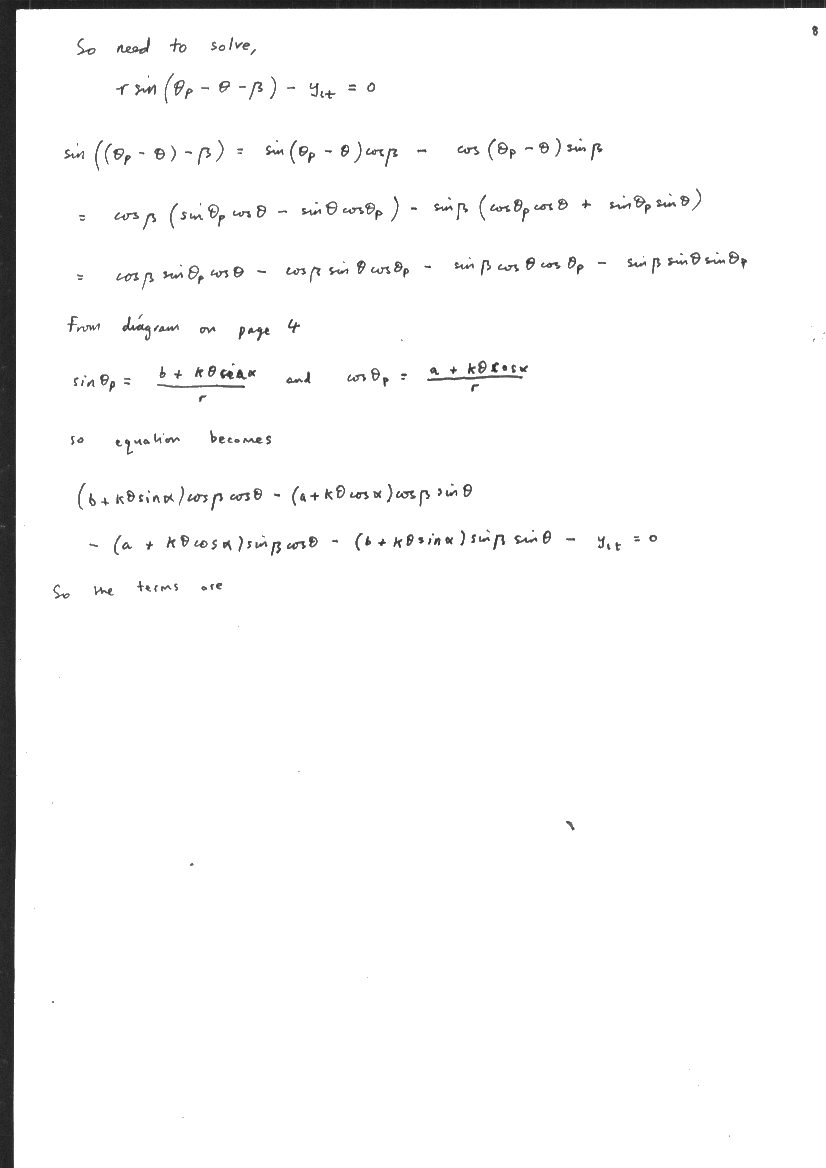 8
So need to solve,
r sin (θp - θ - β) - y1t = 0
sin ((θp - θ) - β) = sin (θp - θ) cos β - cos (θp - θ) sin β
= cos β (sin θp cos θ - sin θ cos θp) - sin β (cos θp cos θ + sin θp sin θ)
= cos β sin θp cos θ - cos β sin θ cos θp - sin β cos θ cos θp - sin β sin θ sin θp
From diagram on page 4
sin θp = (b + kθ sin α) / r and cos θp = (a + kθ cos α) / r
so equation becomes
(b + kθ sin α) cos β cos θ - (a + kθ cos α) cos β sin θ
- (a + kθ cos α) sin β cos θ - (b + kθ sin α) sin β sin θ - y1t = 0
So the terms are